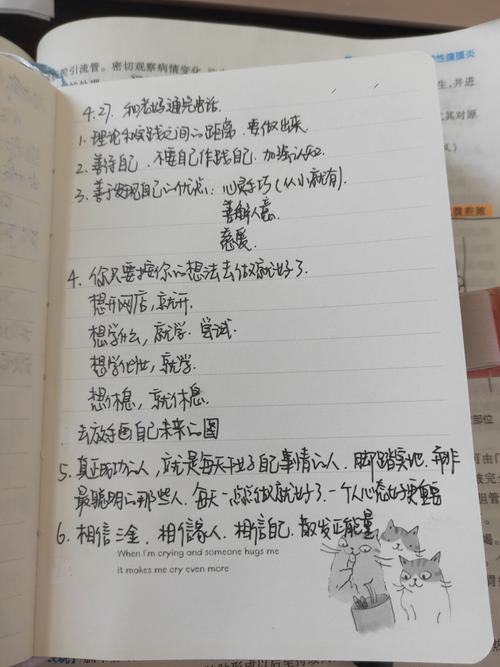 腔引流管。密切观察病情变化
性腹膜炎
4.27. 和老妈通完电话.
1. 理论和实践之间的距离, 要做出来.
2. 善待自己. 不要自己作践自己. 加强认知.
3. 善于发现自己的优点: 心灵手巧 (从小就有).
善解人意.
慈爱.
4. 你只要按你的想法去做就好了.
想开网店, 就开.
想学什么, 就学. 尝试.
想学,就学.
想休息, 就休息.
去放手画自己未来的图
5. 真正成功的人, 就是每天干好自己事情的人. 脚踏实地. 并非
最聪明的那些人. 每天一点点做就好了. 一个人心态好更重要
6. 相信三金. 相信家人. 相信自己. 散发正能量.
When I'm crying and someone hugs me
it makes me cry even more